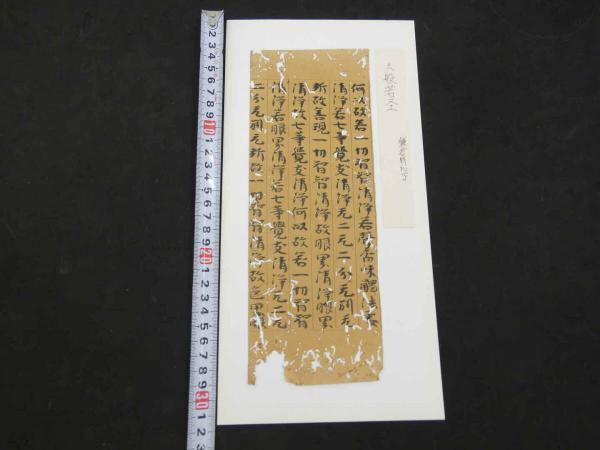 大般若
鎌倉時代写
何以故若一切智智清淨若聲香味觸法界
清淨若七等覺支清淨无二无二分无別无
斷故善現一切智智清淨故眼界清淨眼界
清淨故七等覺支清淨何以故若一切智智
清淨若眼界清淨若七等覺支清淨无二无
二分无別无斷故一切智智清淨故色界眼
1 2 3 4 5 6 7 8 9 10 1 2 3 4 5 6 7 8 9 20 1 2 3 4 5 6 7 8 9 30